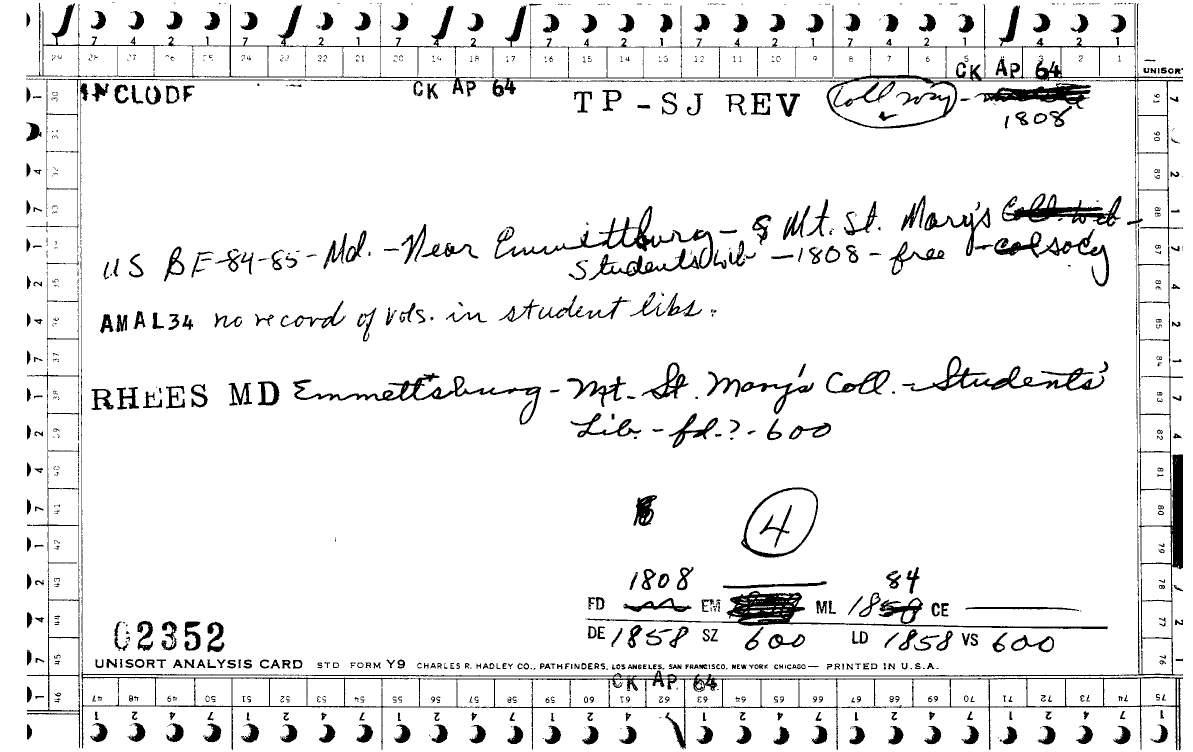 7 4 2 1 7 4 2 1 7 4 2 1 7 4 2 1 7 4 2 1 7 4 2 1 7 4 2 1
29 28 27 26 25 24 23 22 21 20 19 18 17 16 15 14 13 12 11 10 9 8 7 6 5 4 3 2 1
CK AP 64
UNISORT
INCLUDE CK AP 64 TP-SJ REV Coll
1808
US BE-84-85-Md.-Near Emmittburg- & Mt. St. Mary's
Students Lib -1808-free -colsocy
AMAL34 no record of vols. in student libs.
RHEES MD Emmettsburg-Mt. St. Mary's Coll.-Students'
Lib.-fd.?-600
4
1808 84
FD EM ML 1858 CE
DE 1858 SZ 600 LD 1858 VS 600
02352
UNISORT ANALYSIS CARD STD FORM Y9 CHARLES R. HADLEY CO., PATHFINDERS, LOS ANGELES, SAN FRANCISCO, NEW YORK CHICAGO— PRINTED IN U.S.A.
CK AP 64
47 48 49 50 51 52 53 54 55 56 57 58 59 60 61 62 63 64 65 66 67 68 69 70 71 72 73 74 75
1 2 4 7 1 2 4 7 1 2 4 7 1 2 4 7 1 2 4 7 1 2 4 7 1 2 4 7 1